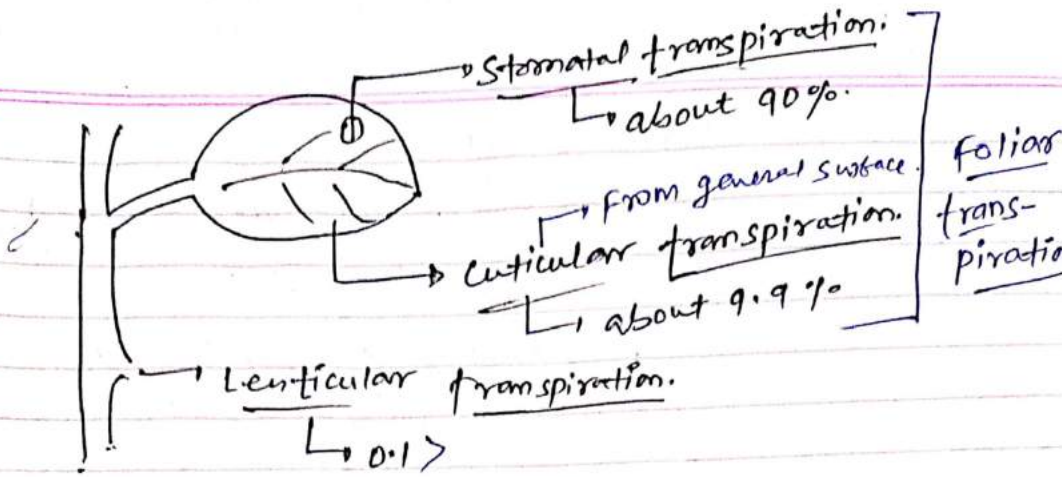 Stomatal transpiration.
about 90%.
From general surface.
Cuticular transpiration.
about 9.9 %
Foliar
trans-
piratio
Lenticular transpiration.
0.1 >